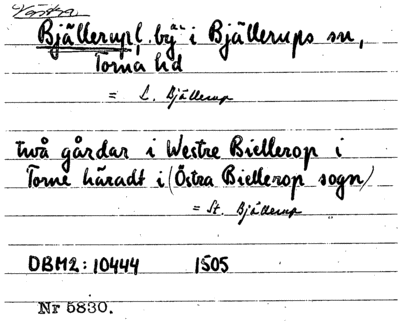 Västra
Bjällerup, by i Bjällerups sn,
Torna hd
= L. Bjällerup
två gårdar i Westre Biellerop i
Torne häradt i (Östra Biellerop sogn)
= St. Bjällerup
DBM2: 10444 1505
Nr 5830.